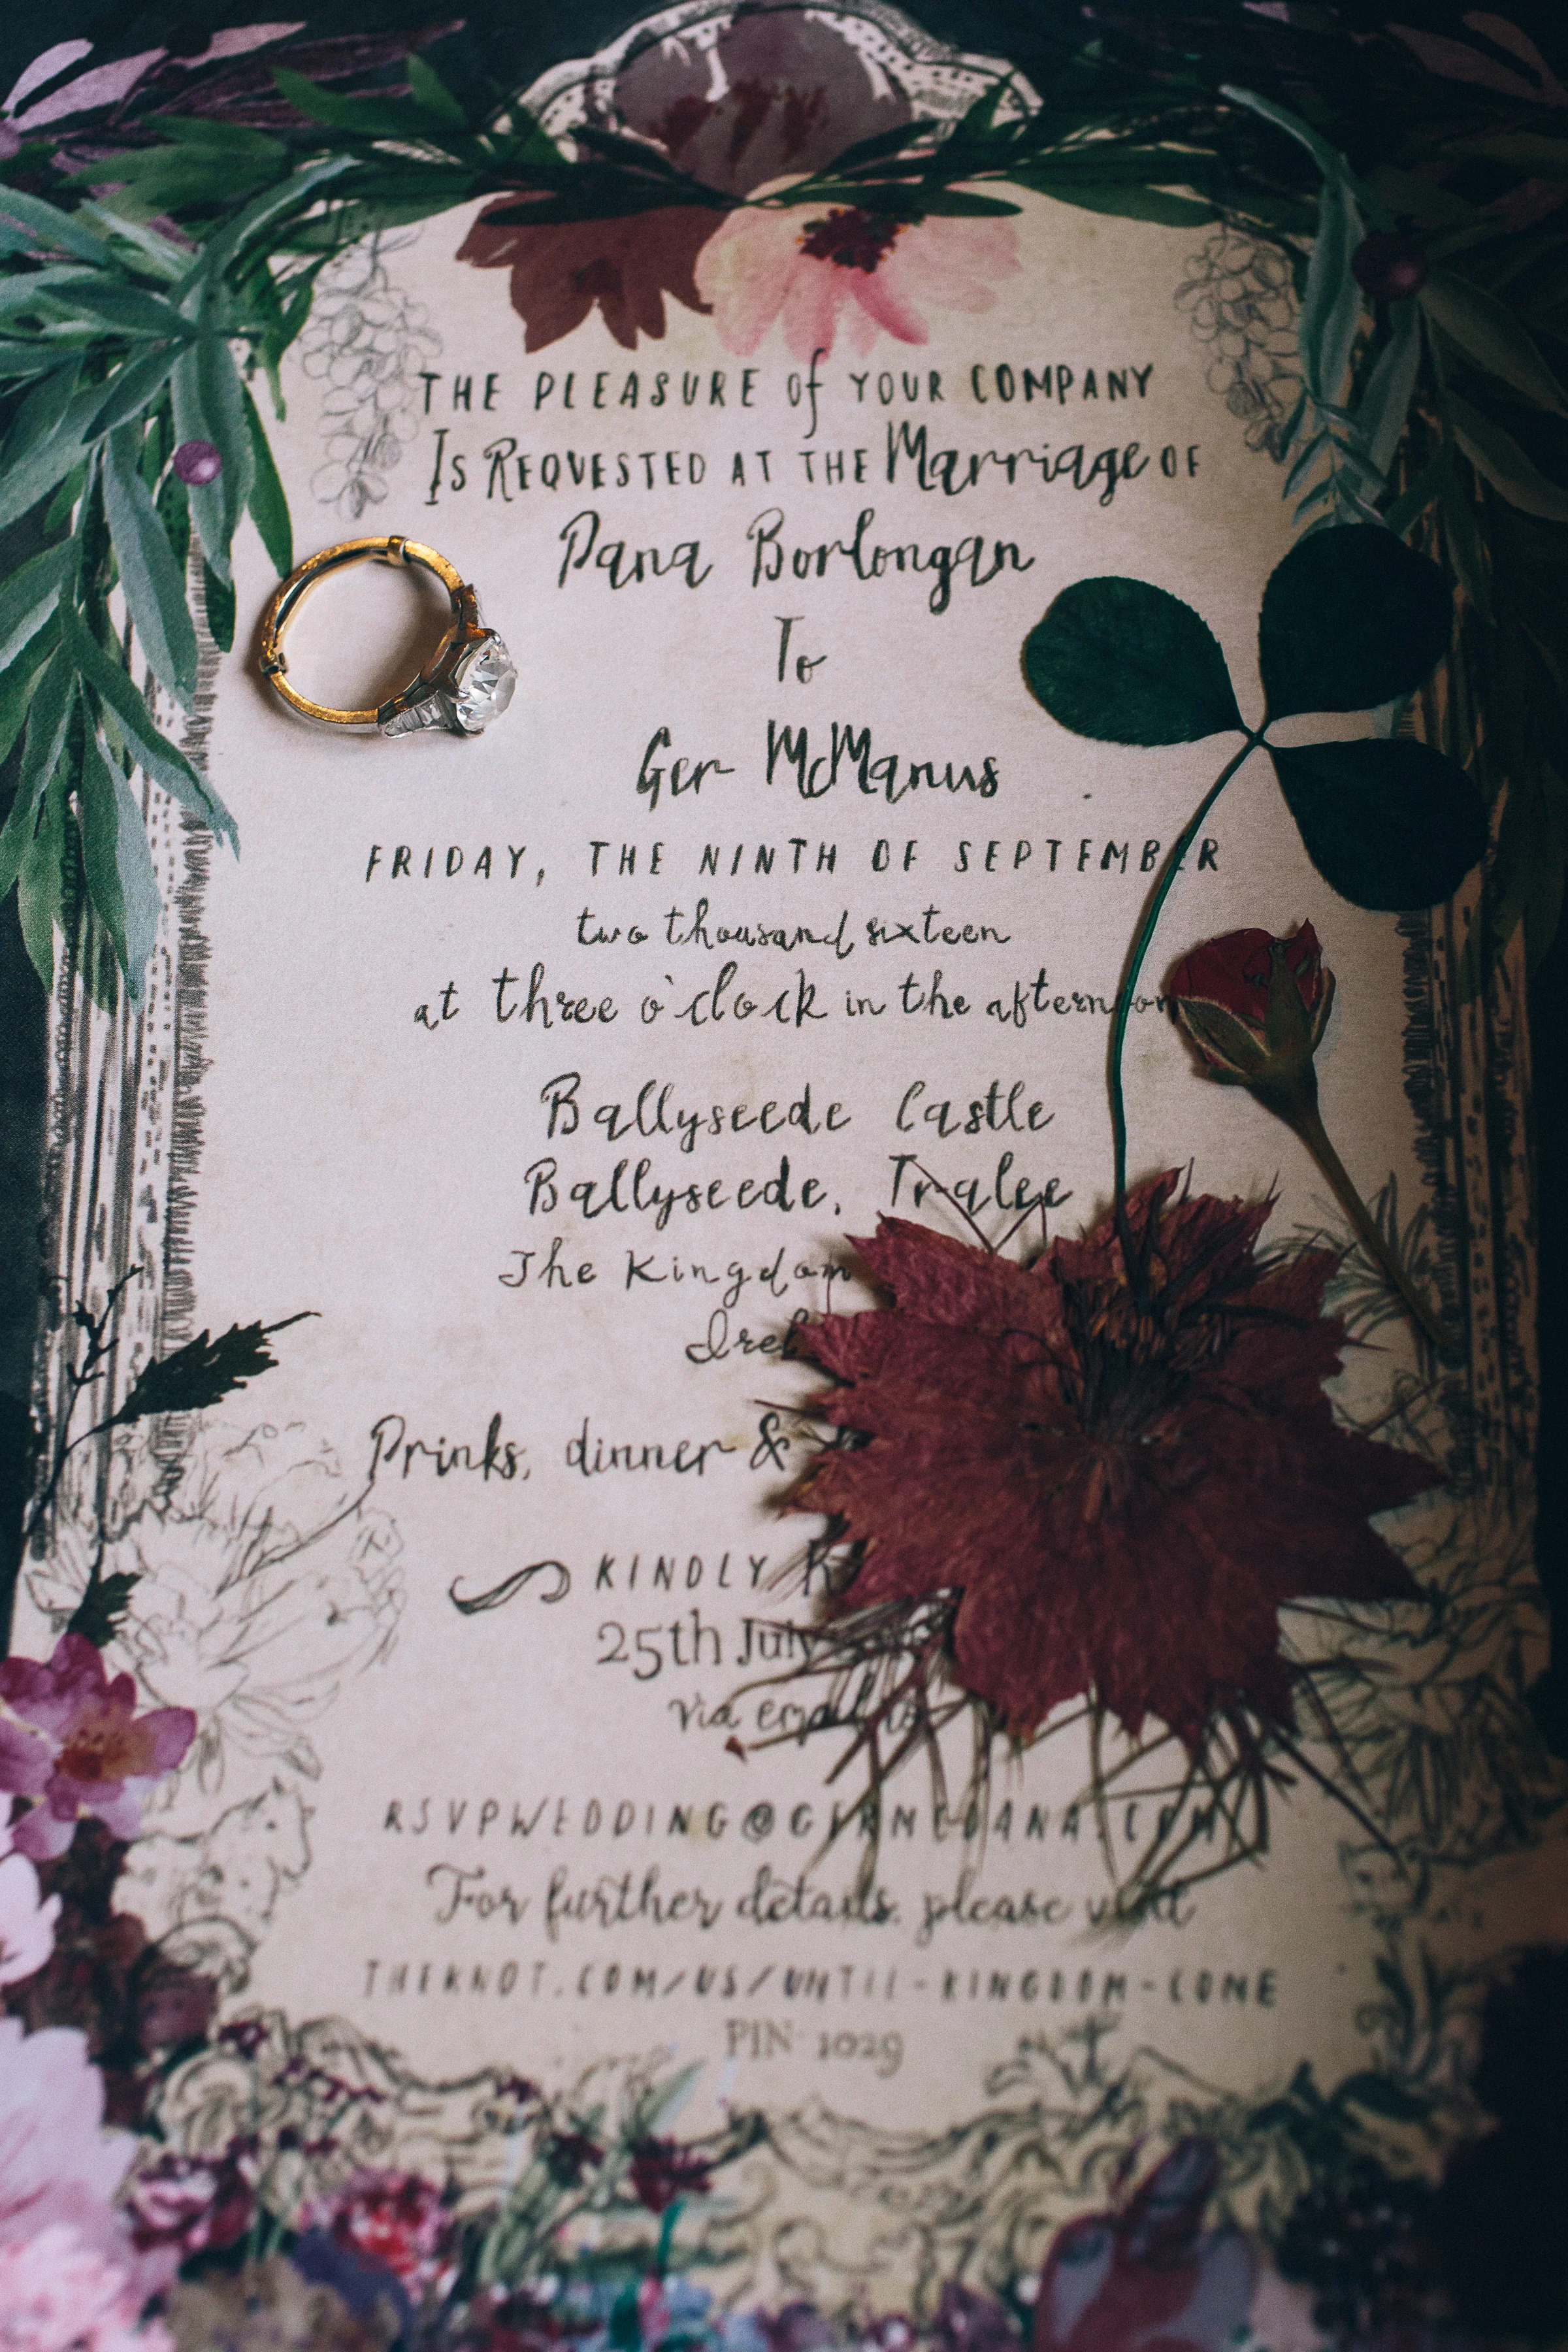 THE PLEASURE of YOUR COMPANY
IS REQUESTED AT THE Marriage OF
Dana Borlongan
To
Ger McManus
FRIDAY, THE NINTH OF SEPTEMBER
two thousand sixteen
at three o'clock in the afternoon
Ballyseede Castle
Ballyseede, Tralee
The Kingdom
Drinks, dinner &
KINDLY
25th July
via email to
RSVPWEDDING@
For further details, please visit
THEKNOT.COM/US/UNTIL-KINGDOM-COME
PIN 1029